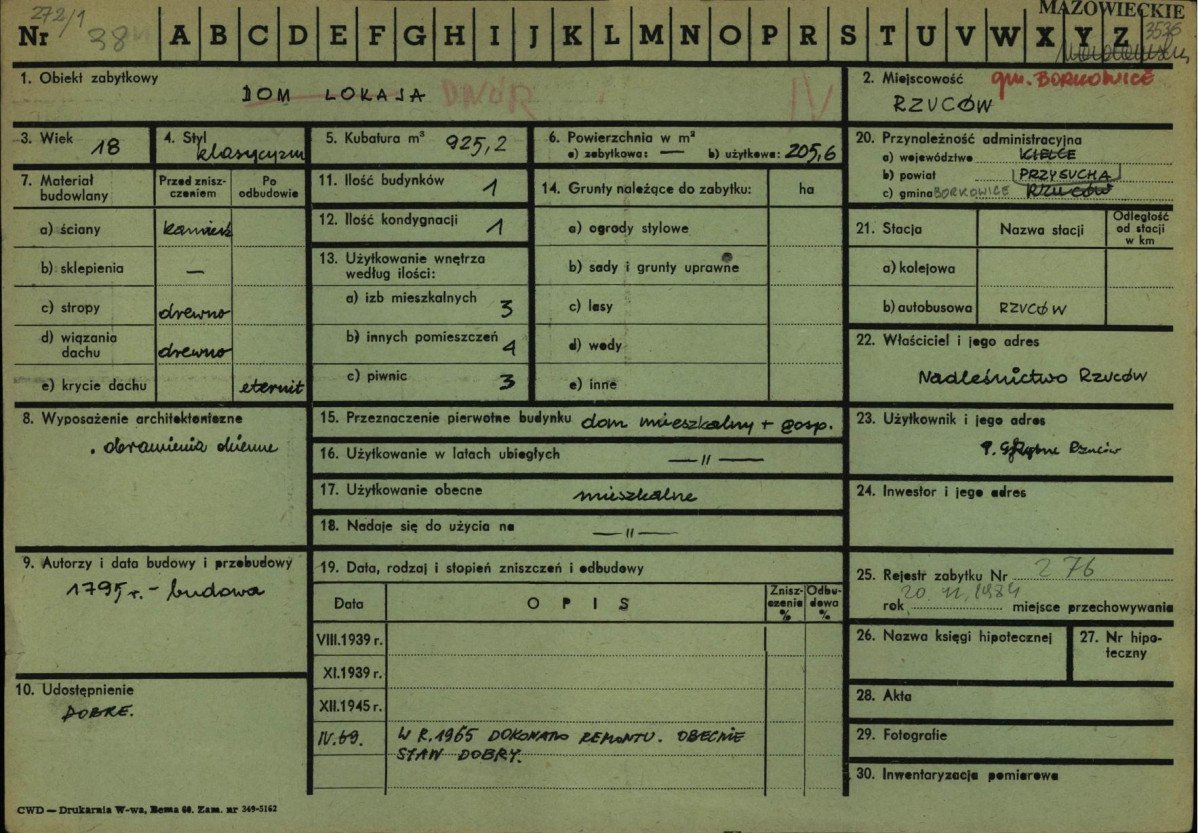 272/1
MAZOWIECKIE
Nr 38 A B C D E F G H I J K L M N O P R S T U V W X Y Z 3536
1. Obiekt zabytkowy
DOM LOKAJA DWÓR IV
2. Miejscowość gm. BORKOWICE
RZUCÓW
3. Wiek 18
4. Styl klasycyzm
5. Kubatura m³ 925,2
6. Powierzchnia w m²
a) zabytkowa: — b) użytkowa: 205,6
20. Przynależność administracyjna
a) województwo KIELCE
b) powiat PRZYSUCHA
c) gmina BORKOWICE RZUCÓW
7. Materiał budowlany
Przed zniszczeniem
Po odbudowie
a) ściany kamień
b) sklepienia —
c) stropy drewno
d) wiązania dachu drewno
e) krycie dachu eternit
11. Ilość budynków 1
12. Ilość kondygnacji 1
13. Użytkowanie wnętrza
według ilości:
a) izb mieszkalnych 3
b) innych pomieszczeń 4
c) piwnic 3
14. Grunty należące do zabytku: ha
a) ogrody stylowe
b) sady i grunty uprawne
c) lasy
d) wody
e) inne
21. Stacja
Nazwa stacji
Odległość od stacji w km
a) kolejowa
b) autobusowa RZUCÓW
22. Właściciel i jego adres
Nadleśnictwo RZUCÓW
8. Wyposażenie architektoniczne
obramienia okienne
15. Przeznaczenie pierwotne budynku dom mieszkalny + gosp.
16. Użytkowanie w latach ubiegłych —〃—
17. Użytkowanie obecne mieszkalne
18. Nadaje się do użycia na —〃—
23. Użytkownik i jego adres
Rzuców
24. Inwestor i jego adres
9. Autorzy i data budowy i przebudowy
1795 r. - budowa
19. Data, rodzaj i stopień zniszczeń i odbudowy
Data
OPIS
Zniszczenia %
Odbudowa %
VIII.1939 r.
XI.1939 r.
XII.1945 r.
IV.69. W R. 1965 DOKONANO REMONTU. OBECNIE
STAN DOBRY.
25. Rejestr zabytku Nr 276
rok 20.11.1984 miejsce przechowywania
26. Nazwa księgi hipotecznej
27. Nr hipoteczny
10. Udostępnienie
DOBRE.
28. Akta
29. Fotografie
30. Inwentaryzacja pomiarowa
CWD — Drukarnia W-wa, Bema 60. Zam. nr 349-5162